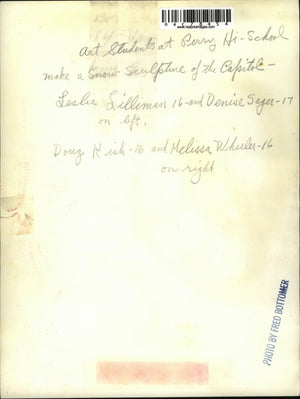 Art Students at Perry Hi-School
make a snow sculpture of the Capitol-
Leslie Lilliman 16-and Denise Sager-17
on left,
Doug Kish-16 and Melissa Wheeler-16
on right
PHOTO BY FRED BOTTOMER